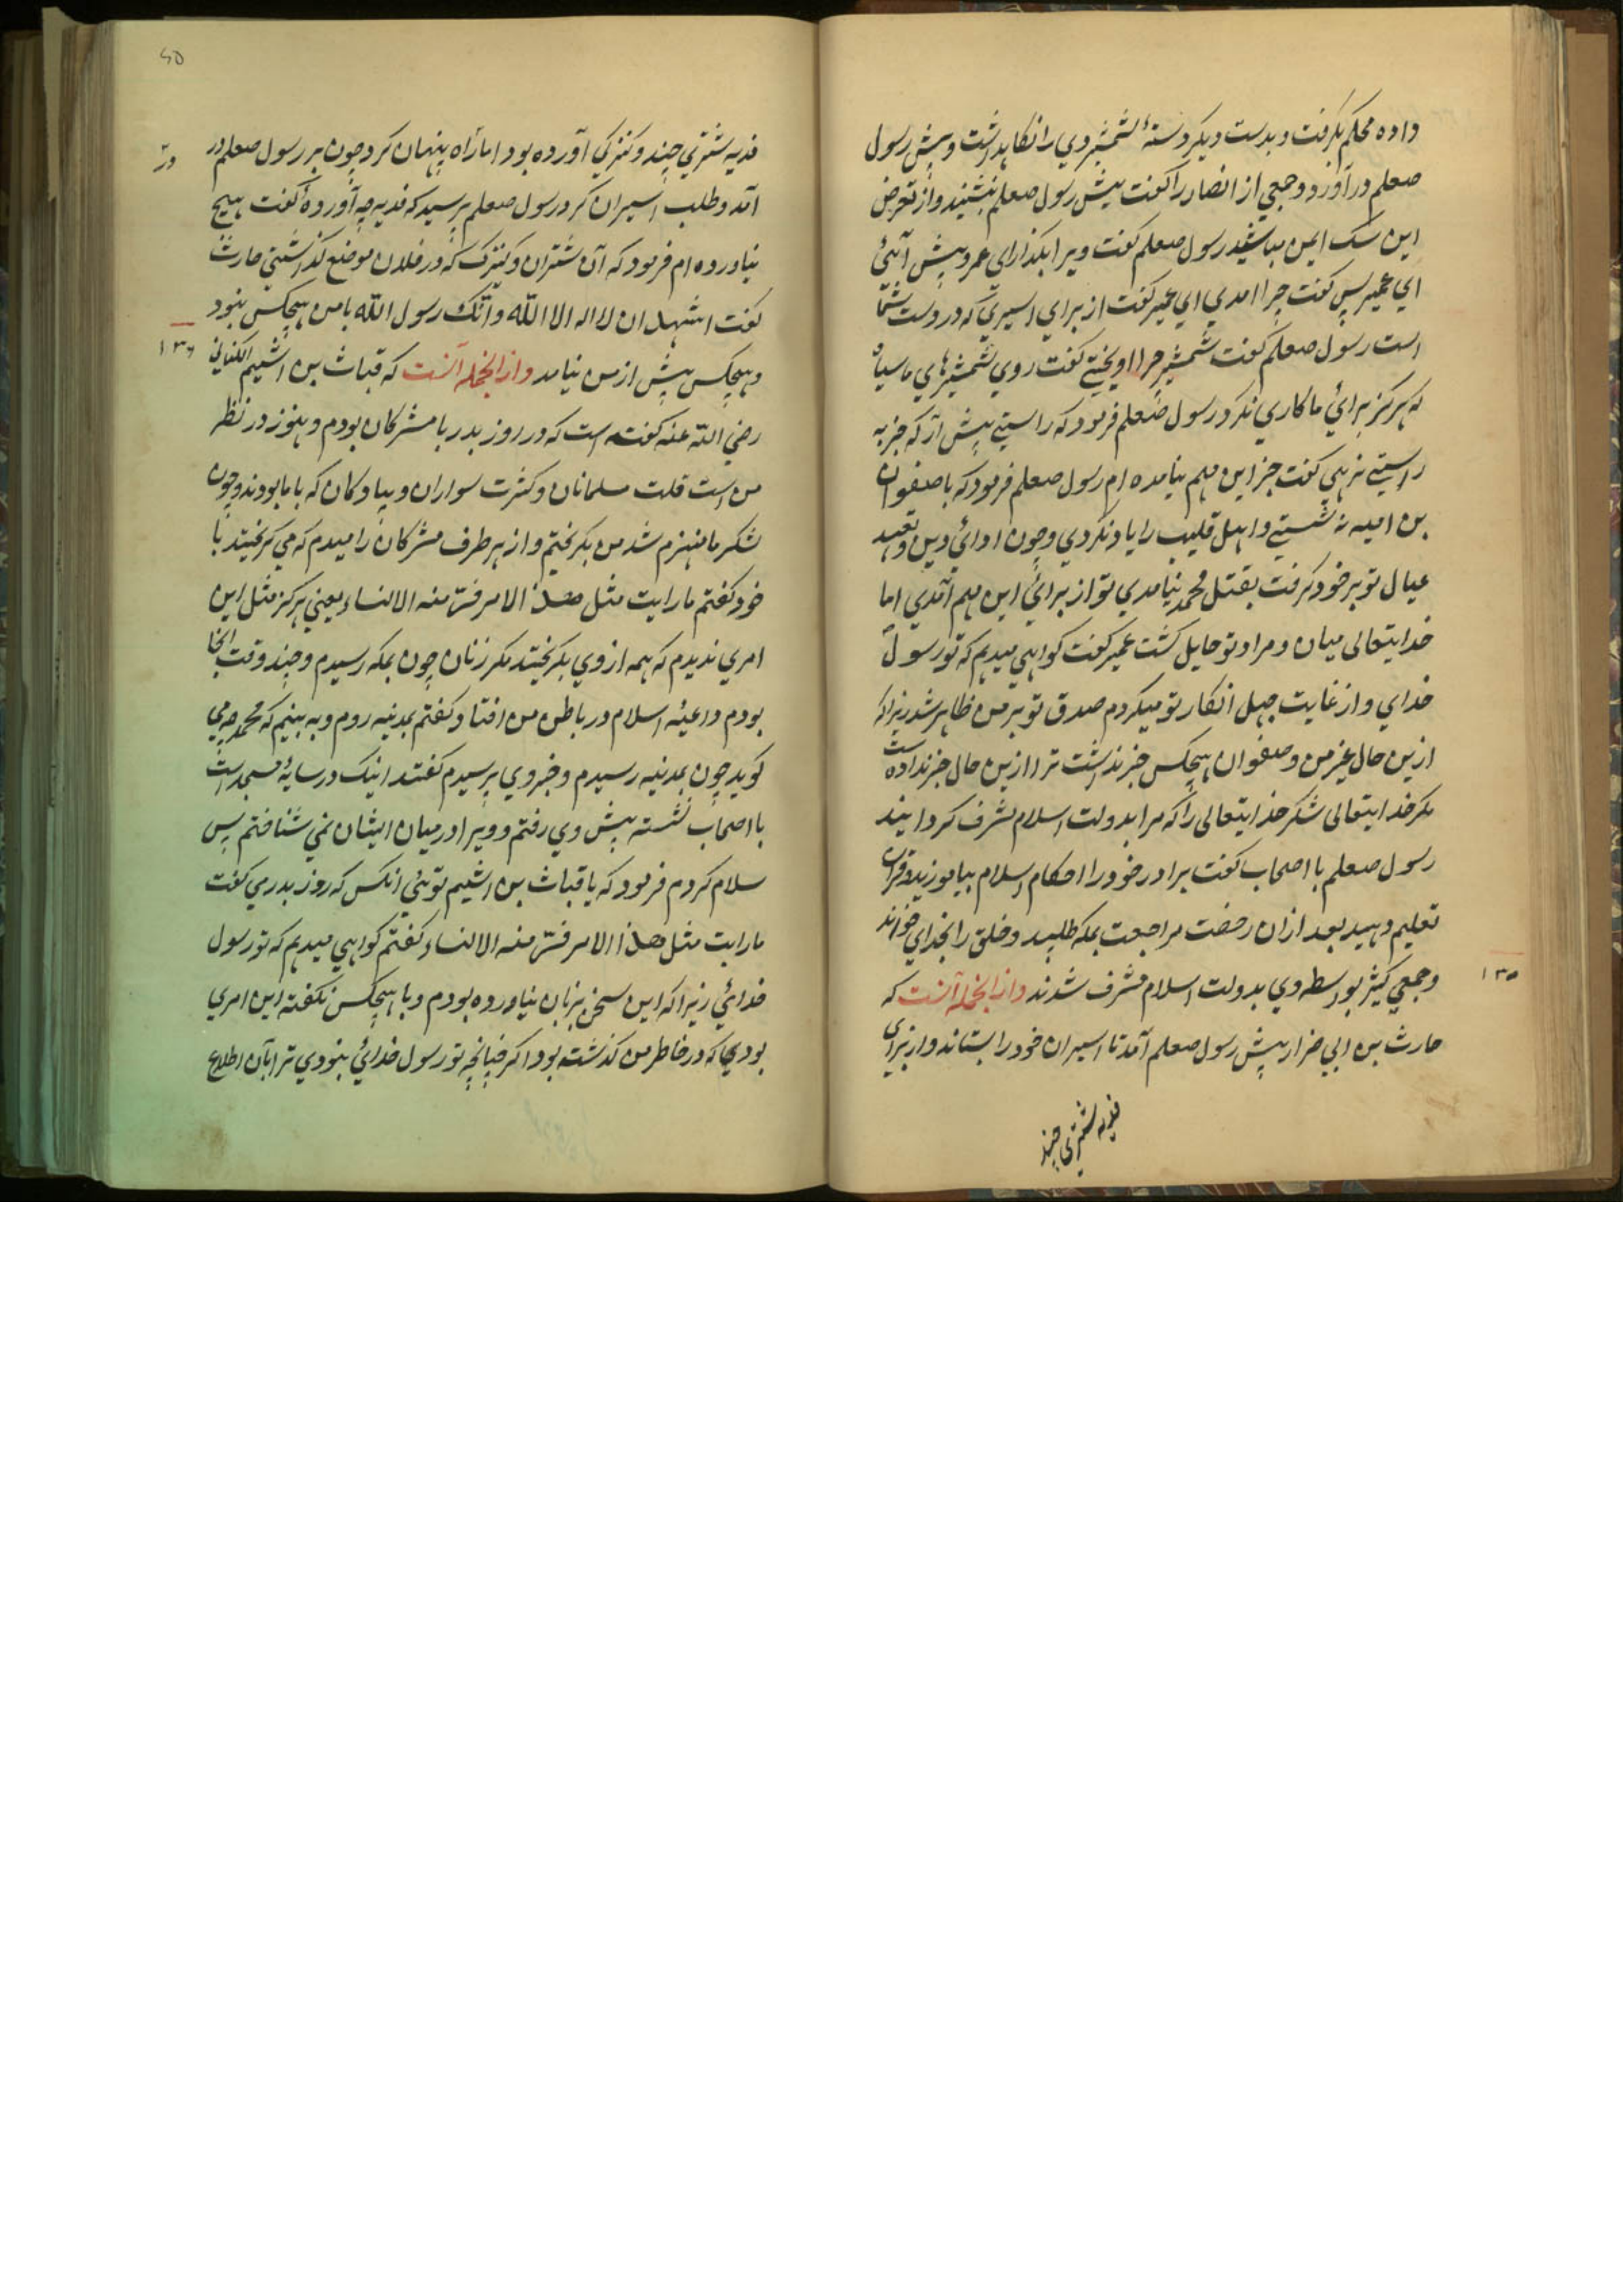 داده محکم بگرفت و بدست دیگر دستهٔ شمشیر وي را نگاهداشت و پیش رسول
صعلم درآورد و جمعي از انصار را گفت پیش رسول صعلم بنشینید و از تعرض
این سک ایمن مباشید رسول صعلم گفت ویرا بگذار ای عمر و پیش آئي
اي عمیر پس گفت چرا امدي اي عمیر گفت از براي اسیري که در دست شما
است رسول صعلم گفت شمشیر چرا اویختي گفت روي شمشیرهاي ما سیاه
که هرگز براي ما کاري نکرد رسول صعلم فرمود که راستي پیش آر که جز به
راستي نرهي گفت جز این مهم نیامده ام رسول صعلم فرمود که با صفوان
بن امیه نه نشستي و اهل قلیب را یاد نکردي و چون اداي دین و تعهد
عیال تو بر خود گرفت بقتل محمد نیامدي تو از براي این مهم آمدي اما
خدایتعالی میان و مراد تو حایل گشت عمیر گفت گواهي میدهم که تو رسول
خداي و از غایت جهل انکار تو میکردم صدق تو بر من ظاهر شد زیراکه
ازین حال غیر من و صفوان هیچکس خبر نداشت ترا ازین حال خبر نداده است
مکر خدایتعالی شکر خدایتعالی را که مرا بدولت اسلام مشرف گردانید
رسول صعلم با اصحاب گفت برادر خود را احکام اسلام بیاموزید و قران
تعلیم دهید بعد ازان رخصت مراجعت بمکه طلبید و خلق را بخداي خواند
و جمعي کثیر بواسطه وي بدولت اسلام مشرف شدند و ازانجمله آنست که
۱۳۵
حارث بن ابي ضرار پیش رسول صعلم آمد تا اسیران خود را بستاند و از براي
فدیه شتري چند
۶۵
فدیه شتري چند و کنیزکي آورده بود اما راه پنهان کرد چون بر رسول صعلم در
آمد و طلب اسیران کرد رسول صعلم پرسید که فدیه چه آوردهٔ گفت هیچ
نیاورده ام فرمود که آن شتران و کنیزک که در فلان موضع گذاشتي حارث
گفت اشهد ان لا اله الا الله و انک رسول الله با من هیچکس نبود
و هیچکس پیش از من نیامد و ازانجمله آنست که قباث بن اشیم الکناني
۱۳۶
رضي الله عنه گفته است که در روز بدر با مشرکان بودم و هنوز در نظر
من است قلت مسلمانان و کثرت سواران و پیادکان که با ما بودند و چون
لشکر ما منهزم شد من بگریختم و از هر طرف مشرکان را میدیدم که مي گریختند با
خود گفتم ما رایت مثل هذا الامر فر منه الا النساء یعني هرگز مثل این
امري ندیدم که همه از وي بگریختند مگر زنان چون بمکه رسیدم و چند وقت انجا
بودم داعیهٔ اسلام در باطن من افتاد گفتم بمدینه روم و به بینم که محمد چه مي
گوید چون بمدینه رسیدم و خبر وي پرسیدم گفتند اینک در سایهٔ مسجد است
با اصحاب نشسته پیش وي رفتم و ویرا در میان ایشان نمي شناختم پس
سلام کردم فرمود که یا قباث بن اشیم توئي انکس که روز بدر مي گفت
ما رایت مثل هذا الامر فر منه الا النساء گفتم گواهي میدهم که تو رسول
خدائي زیراکه این سخن بزبان نیاورده بودم و با هیچکس نگفته این امري
بود که در خاطر من گذشته بود اگر چنانچه تو رسول خدائي نبودي ترا بآن اطلاع